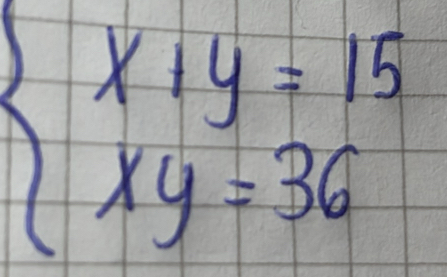 x + y = 15
xy = 36